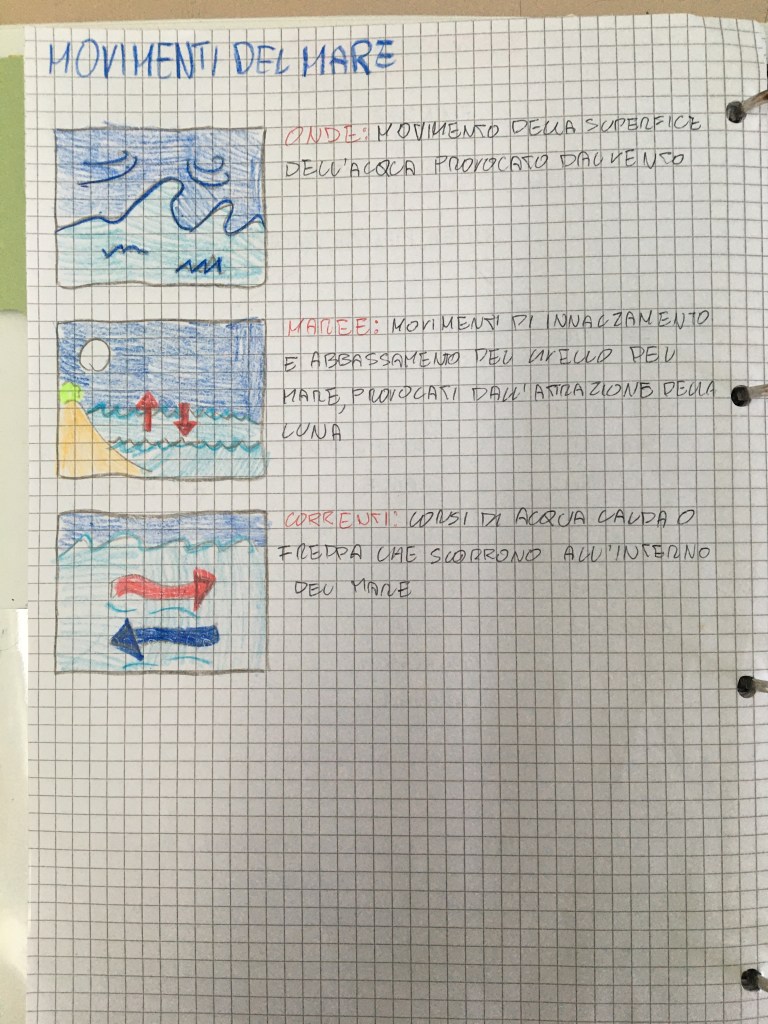 MOVIMENTI DEL MARE
ONDE: MOVIMENTO DELLA SUPERFICE
DELL'ACQUA PROVOCATO DAL VENTO
MAREE: MOVIMENTI DI INNALZAMENTO
E ABBASSAMENTO DEL LIVELLO DEL
MARE, PROVOCATI DALL'ATTRAZIONE DELLA
LUNA
CORRENTI: CORSI DI ACQUA CALDA O
FREDDA CHE SCORRONO ALL'INTERNO
DEL MARE